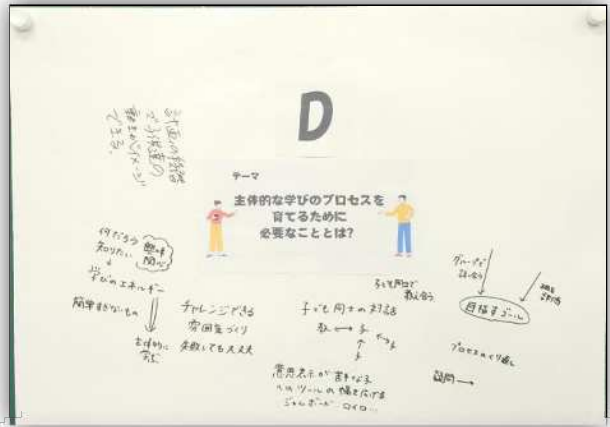 D
テーマ
主体的な学びのプロセスを
育てるために
必要なこととは?
計画の段階
で子供達の
動きがイメージ
できる。
何だろう
知りたい
興味
関心
学びのエネルギー
簡単すぎないもの
主体的に
学ぶ
チャレンジできる
雰囲気づくり
失敗しても大丈夫
子ども同士の対話
教 ↔ 子
子
子
子ども同士で
教え合う
意思表示が苦手な子
へのツールの幅を広げる
ジャムボード ロイロ…
グループで
話し合う
目指すゴール
プロセスのくり返し
疑問→